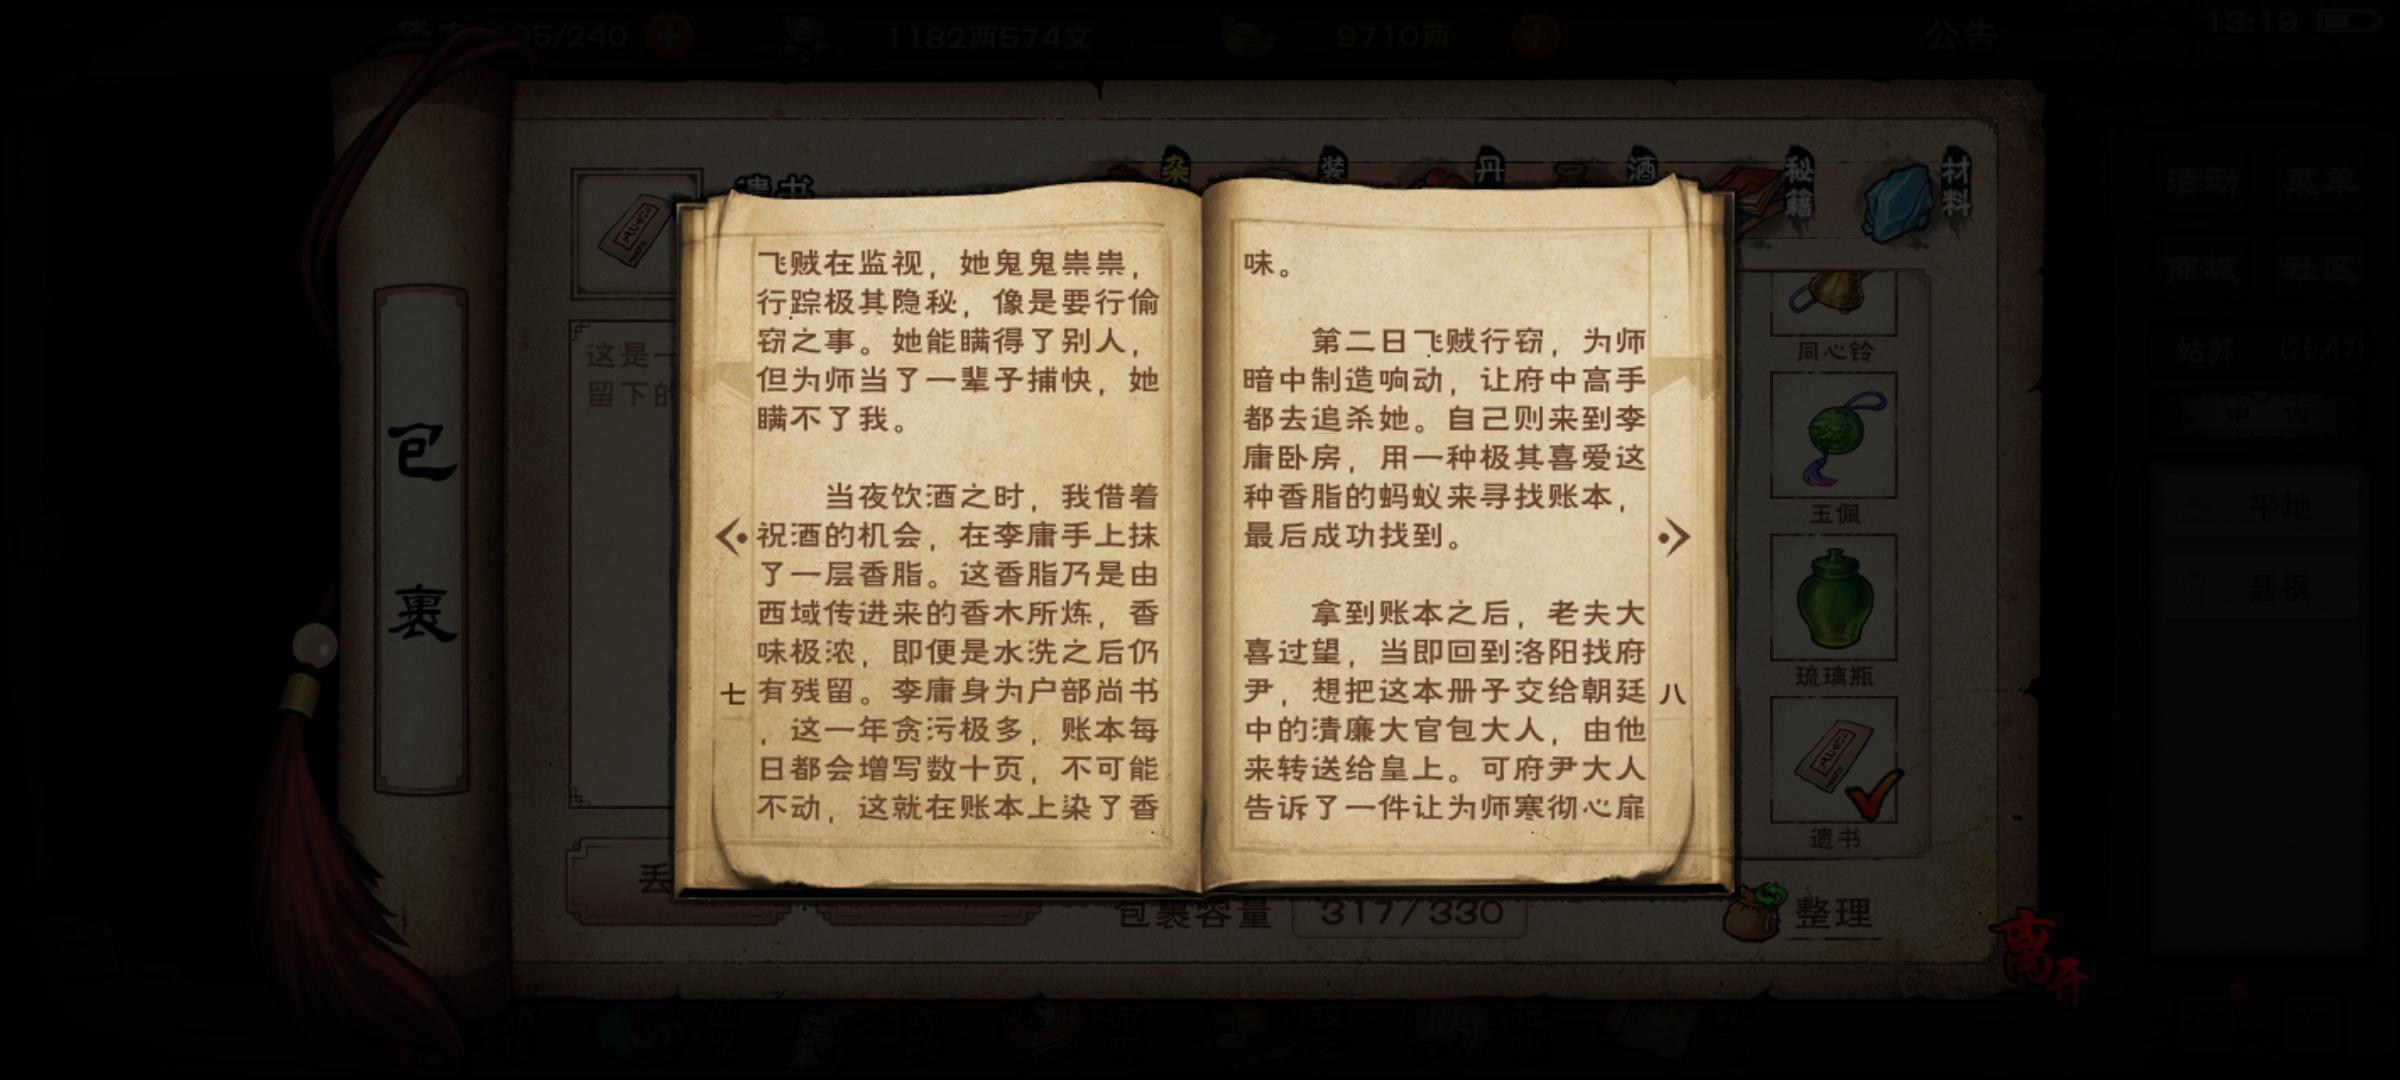 195/240
1182两574文
9710两
公告
13:19
遗书
杂
装
丹
酒
秘籍
材料
活动
菜单
商城
社区
姑苏 (26,47)
包裹
这是一
留下的
飞贼在监视，她鬼鬼祟祟，
行踪极其隐秘，像是要行偷
窃之事。她能瞒得了别人，
但为师当了一辈子捕快，她
瞒不了我。
当夜饮酒之时，我借着
祝酒的机会，在李庸手上抹
了一层香脂。这香脂乃是由
西域传进来的香木所炼，香
味极浓，即便是水洗之后仍
有残留。李庸身为户部尚书
，这一年贪污极多，账本每
日都会增写数十页，不可能
不动，这就在账本上染了香
七
味。
第二日飞贼行窃，为师
暗中制造响动，让府中高手
都去追杀她。自己则来到李
庸卧房，用一种极其喜爱这
种香脂的蚂蚁来寻找账本，
最后成功找到。
拿到账本之后，老夫大
喜过望，当即回到洛阳找府
尹，想把这本册子交给朝廷
中的清廉大官包大人，由他
来转送给皇上。可府尹大人
告诉了一件让为师寒彻心扉
八
同心铃
玉佩
琉璃瓶
遗书
申 酉
平地
聂枫
丢
包裹容量 317/330
整理
离开